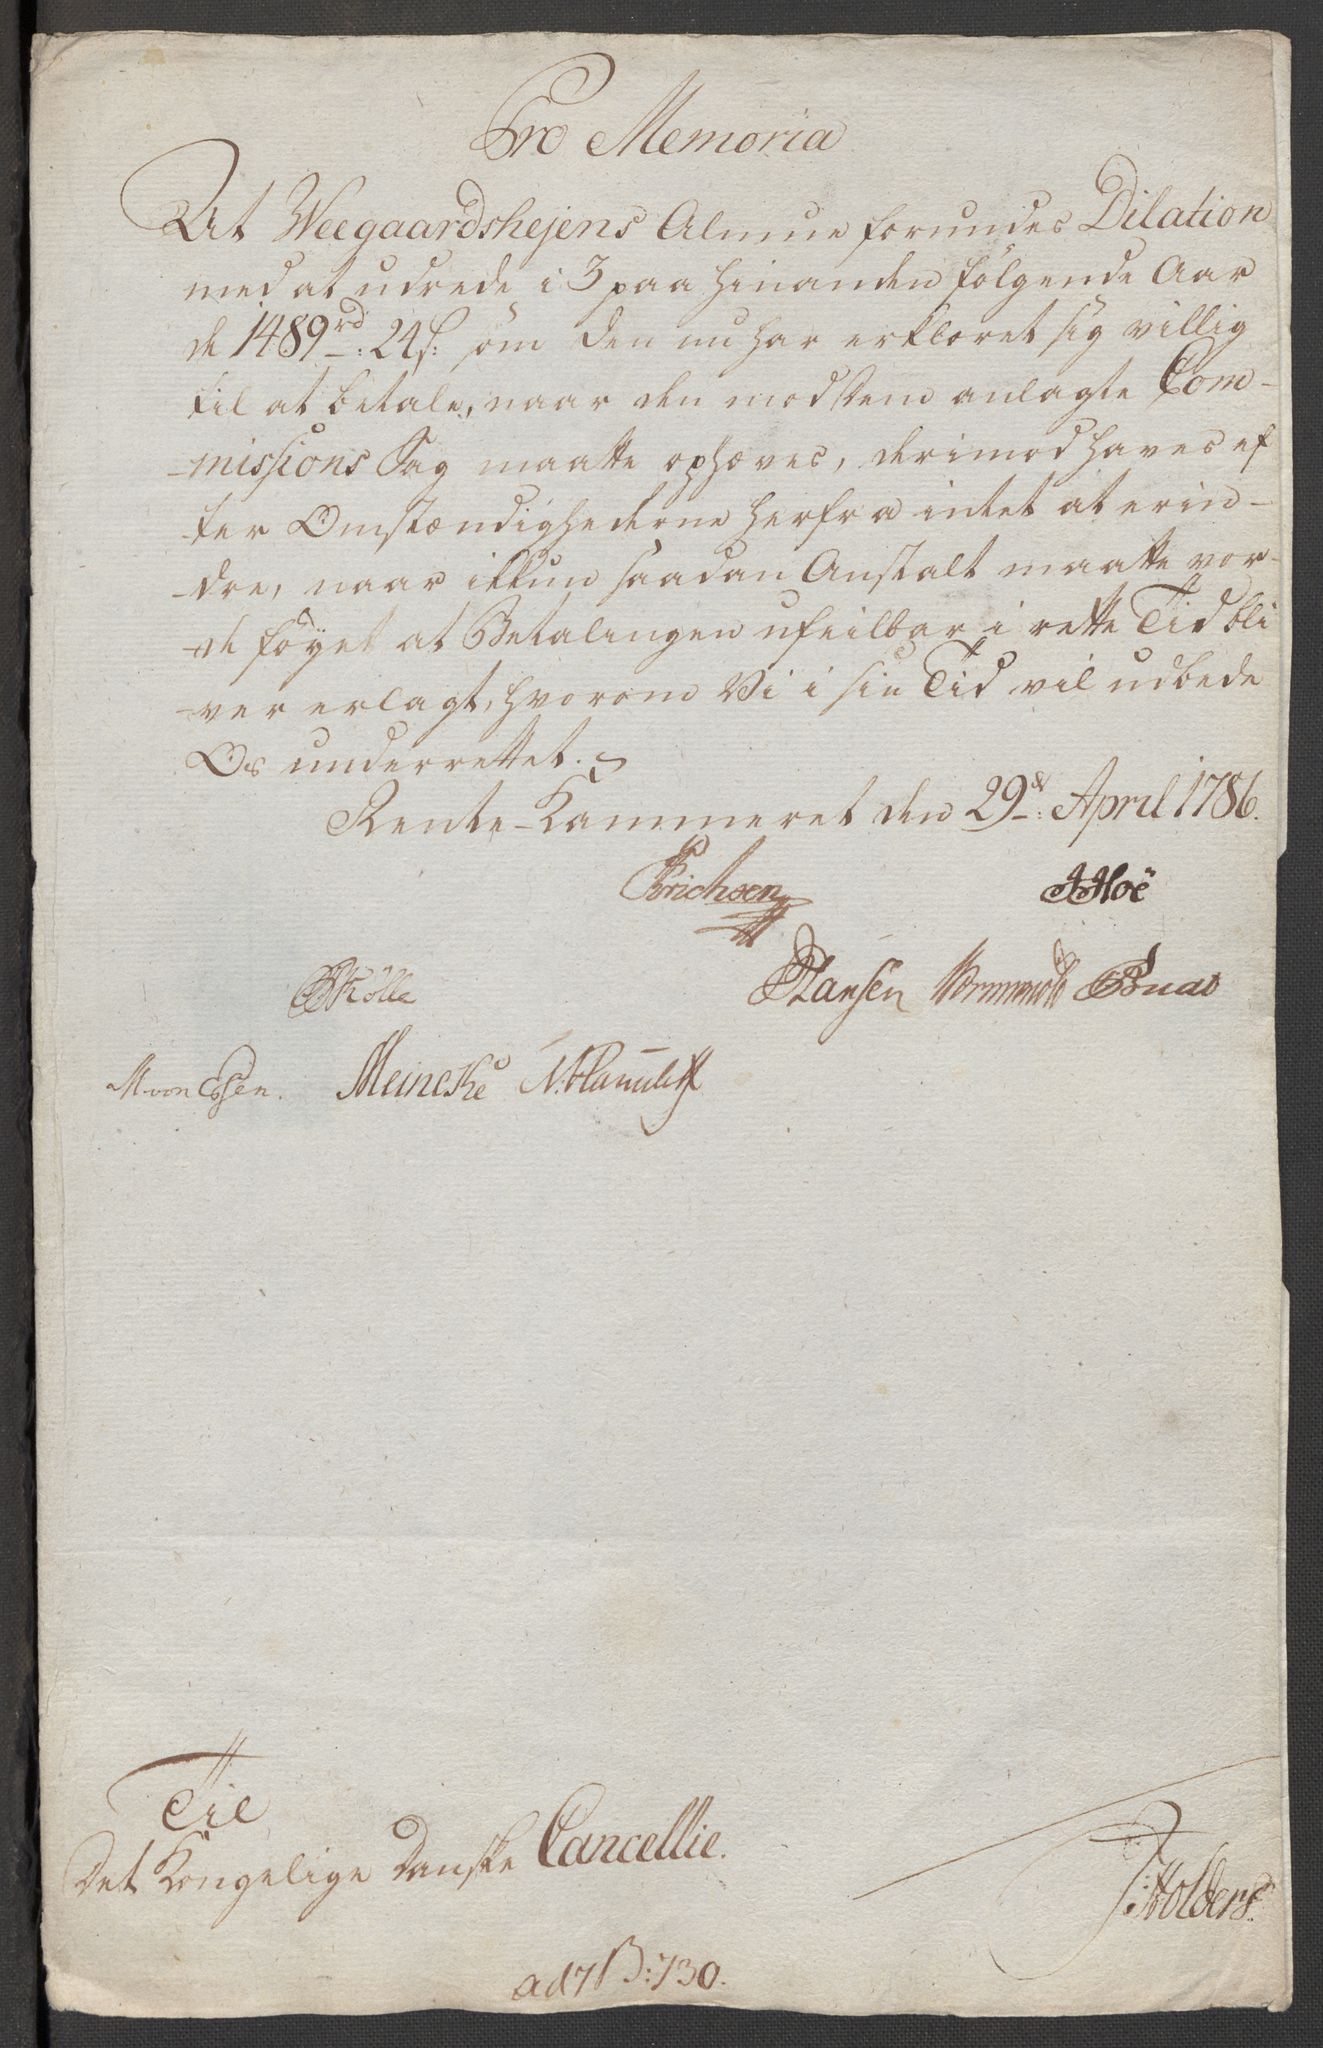 Pro Memoria
At Weegaardshejens Almue forundes Dilation
med at udrede i 3 paa hinanden følgende Aar
de 1489 rd: 24 s: som den nu har erklæret sig villig
til at betale, naar den mod dem anlagte Com-
missions Sag maatte ophæves, derimod haves ef
ter Omstændighederne herfra intet at erin-
dre, naar ikkun saadan Anstalt maatte vor-
de føyet at Betalingen ufeilbar i rette Tid bli
ver erlagt, hvorom Vi i sin Tid vil udbede
Os underrettet.
Rente-Kammeret den 29de: April 1786.
Erichsen AHoë
Skölle PHansen Wormwold
MvonEssen. Meincke
Til
Det Kongelige Danske Cancellie.
THolders.
ad 7 B: 730.